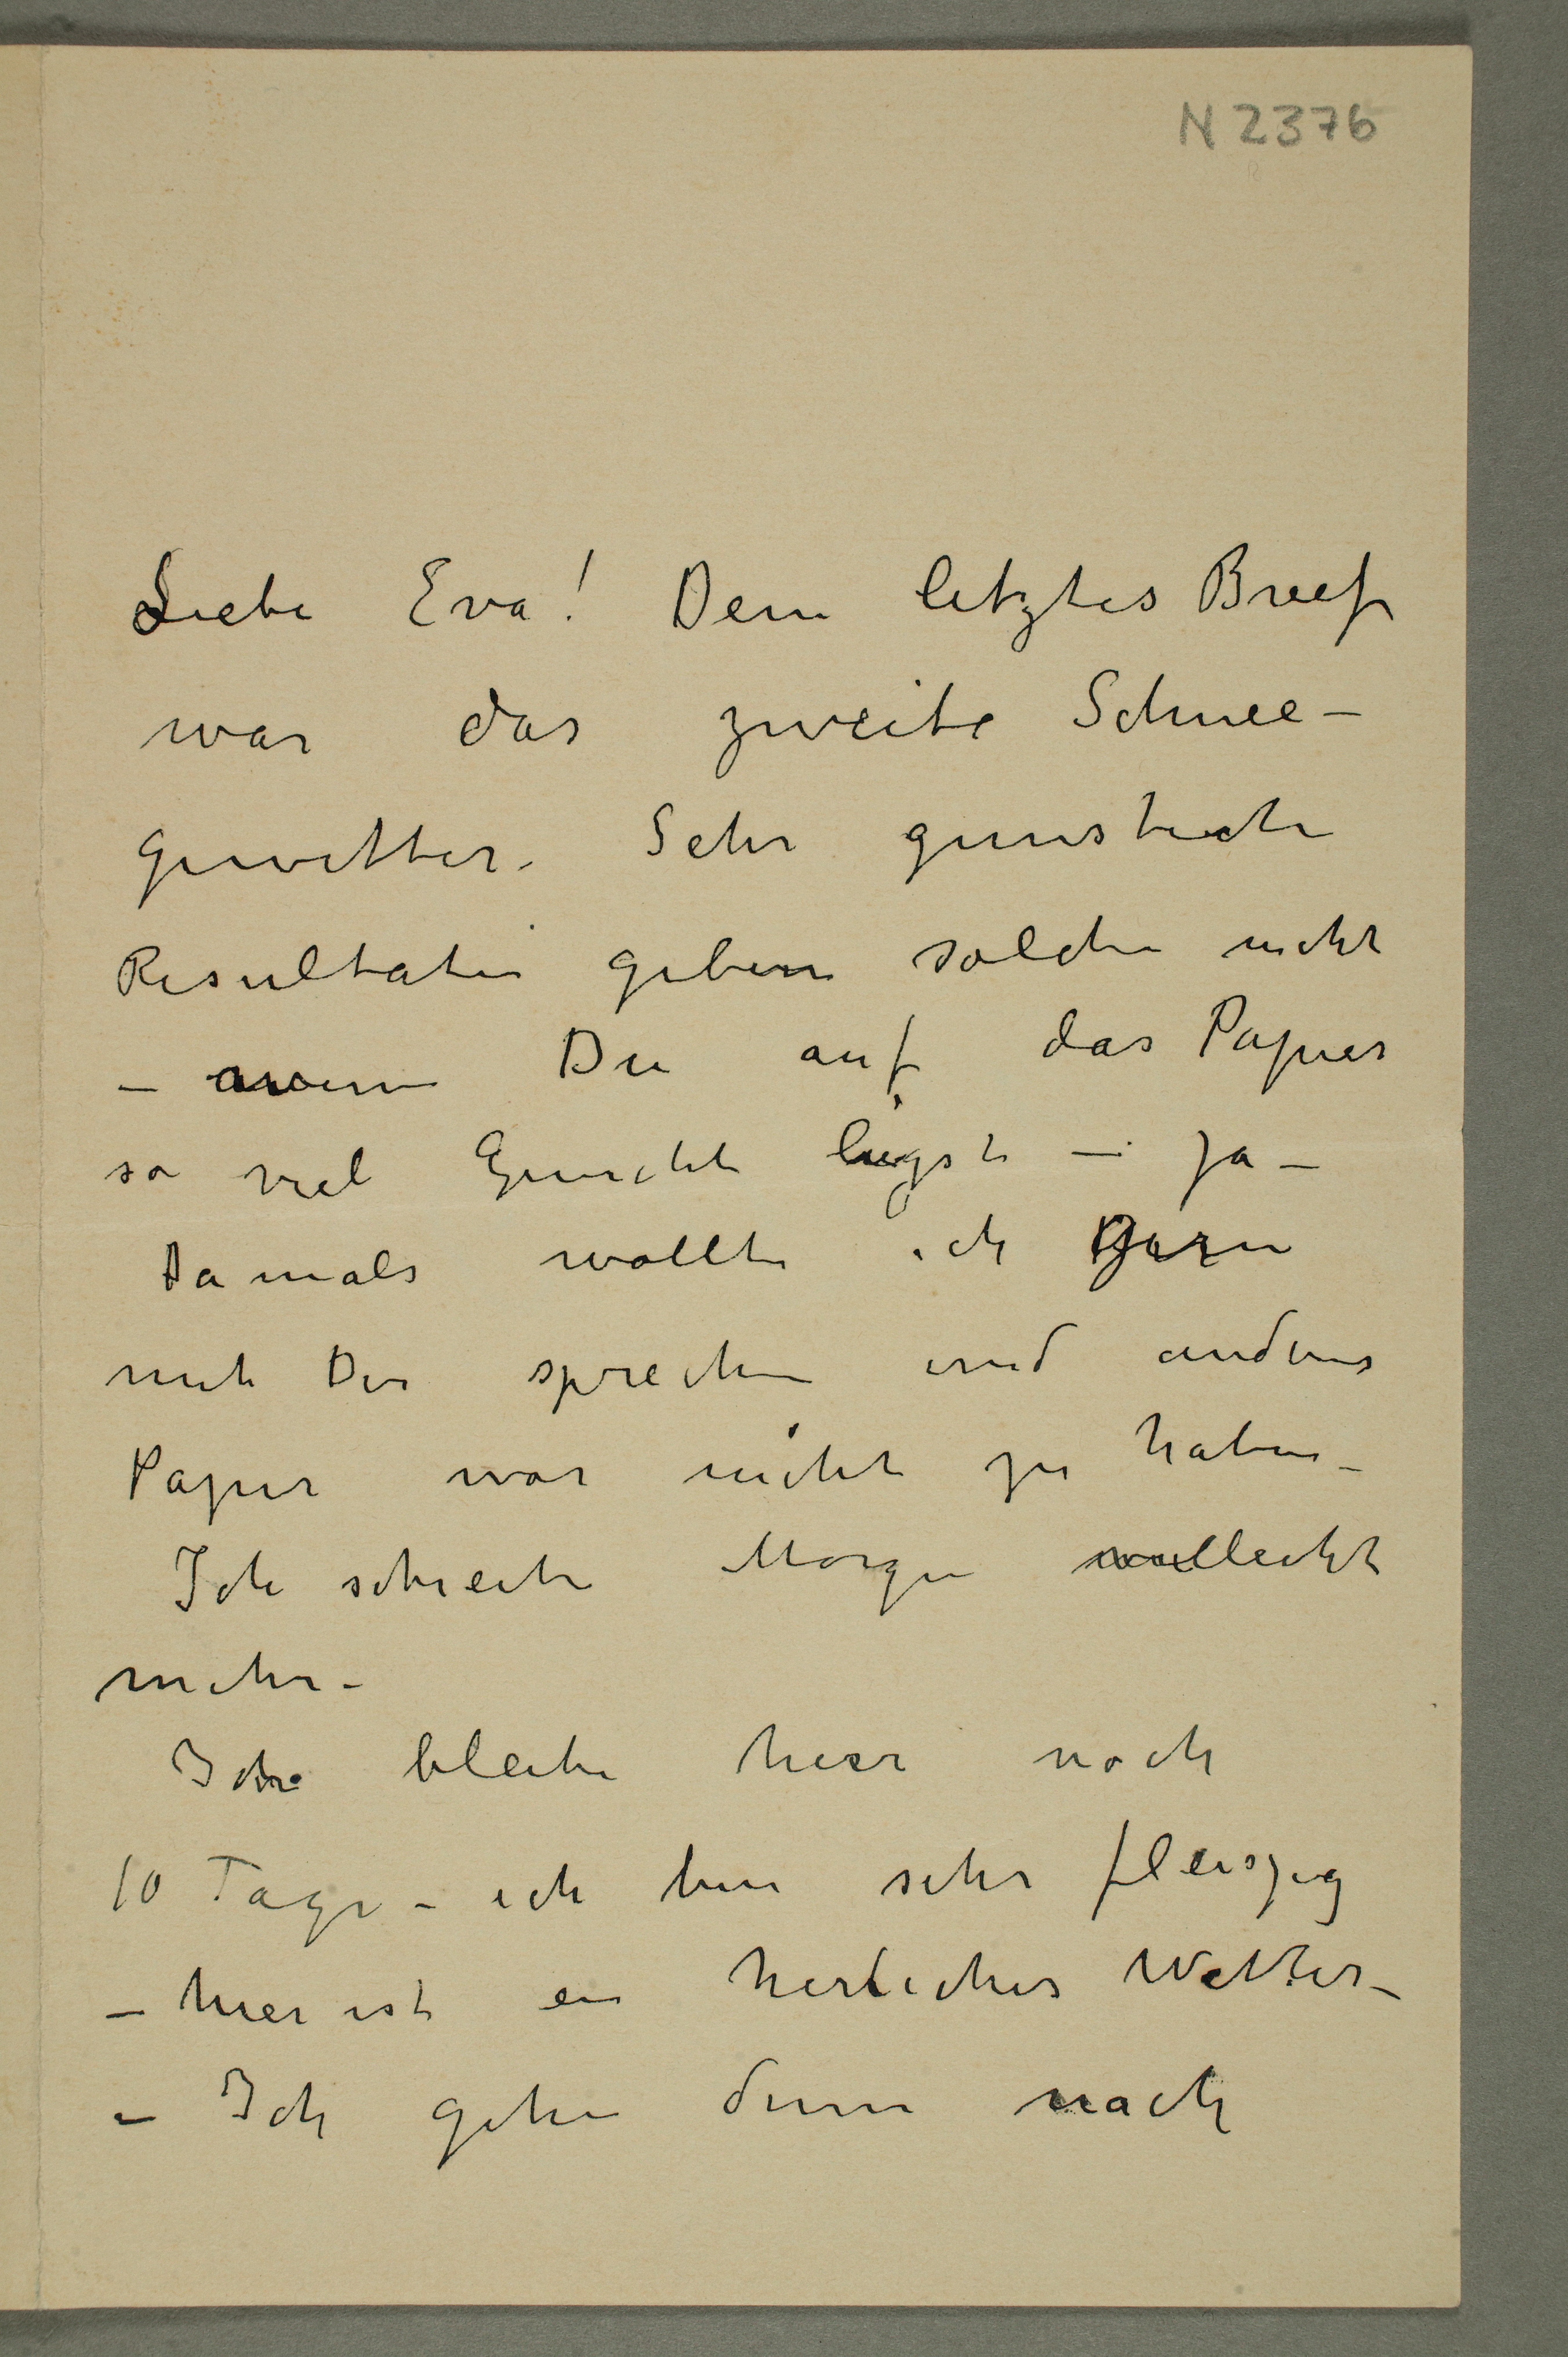 N 2376
Liebe Eva! Dein letztes Brief
war das zweite Schnee-
gewitter. Sehr gunstiche
Resultaten geben solche nicht
– wenn Du auf das Papier
so viel Gewicht legst – ja –
Damals wollte ich gern
mit Dir sprechen und anderes
Papier war nicht zu haben –
Ich schreibe Morgen vielleicht
mehr –
Ich bleibe hier noch
10 Tage – ich bin sehr fleiszig
– hier ist ein herliches Wetter –
– Ich gehe denn nach